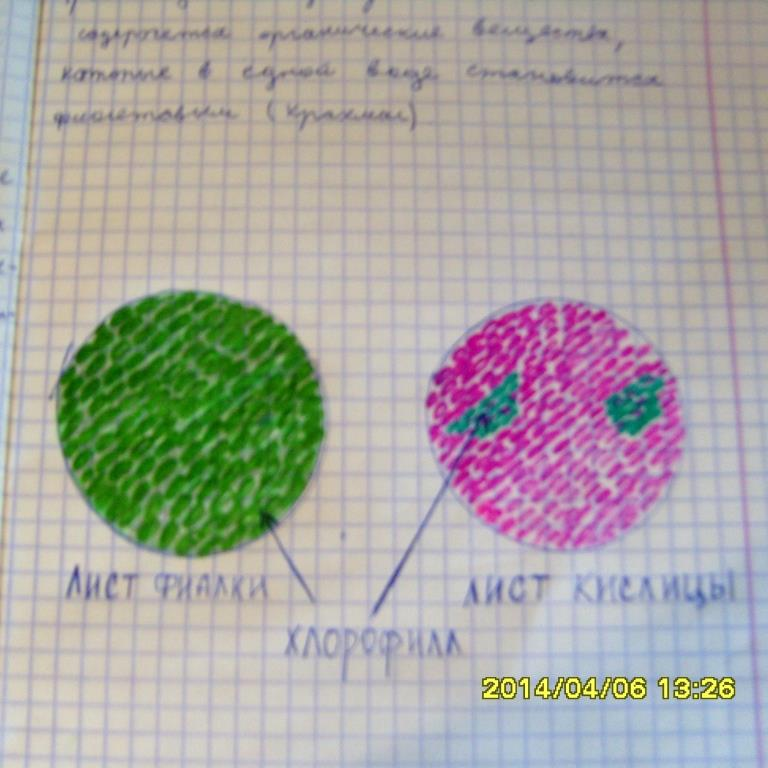 содержатся органические вещества,
которые в едной воде становится
фиолетовым (крахмал)
ЛИСТ ФИАЛКИ
ЛИСТ КИСЛИЦЫ
ХЛОРОФИЛЛ
2014/04/06 13:26